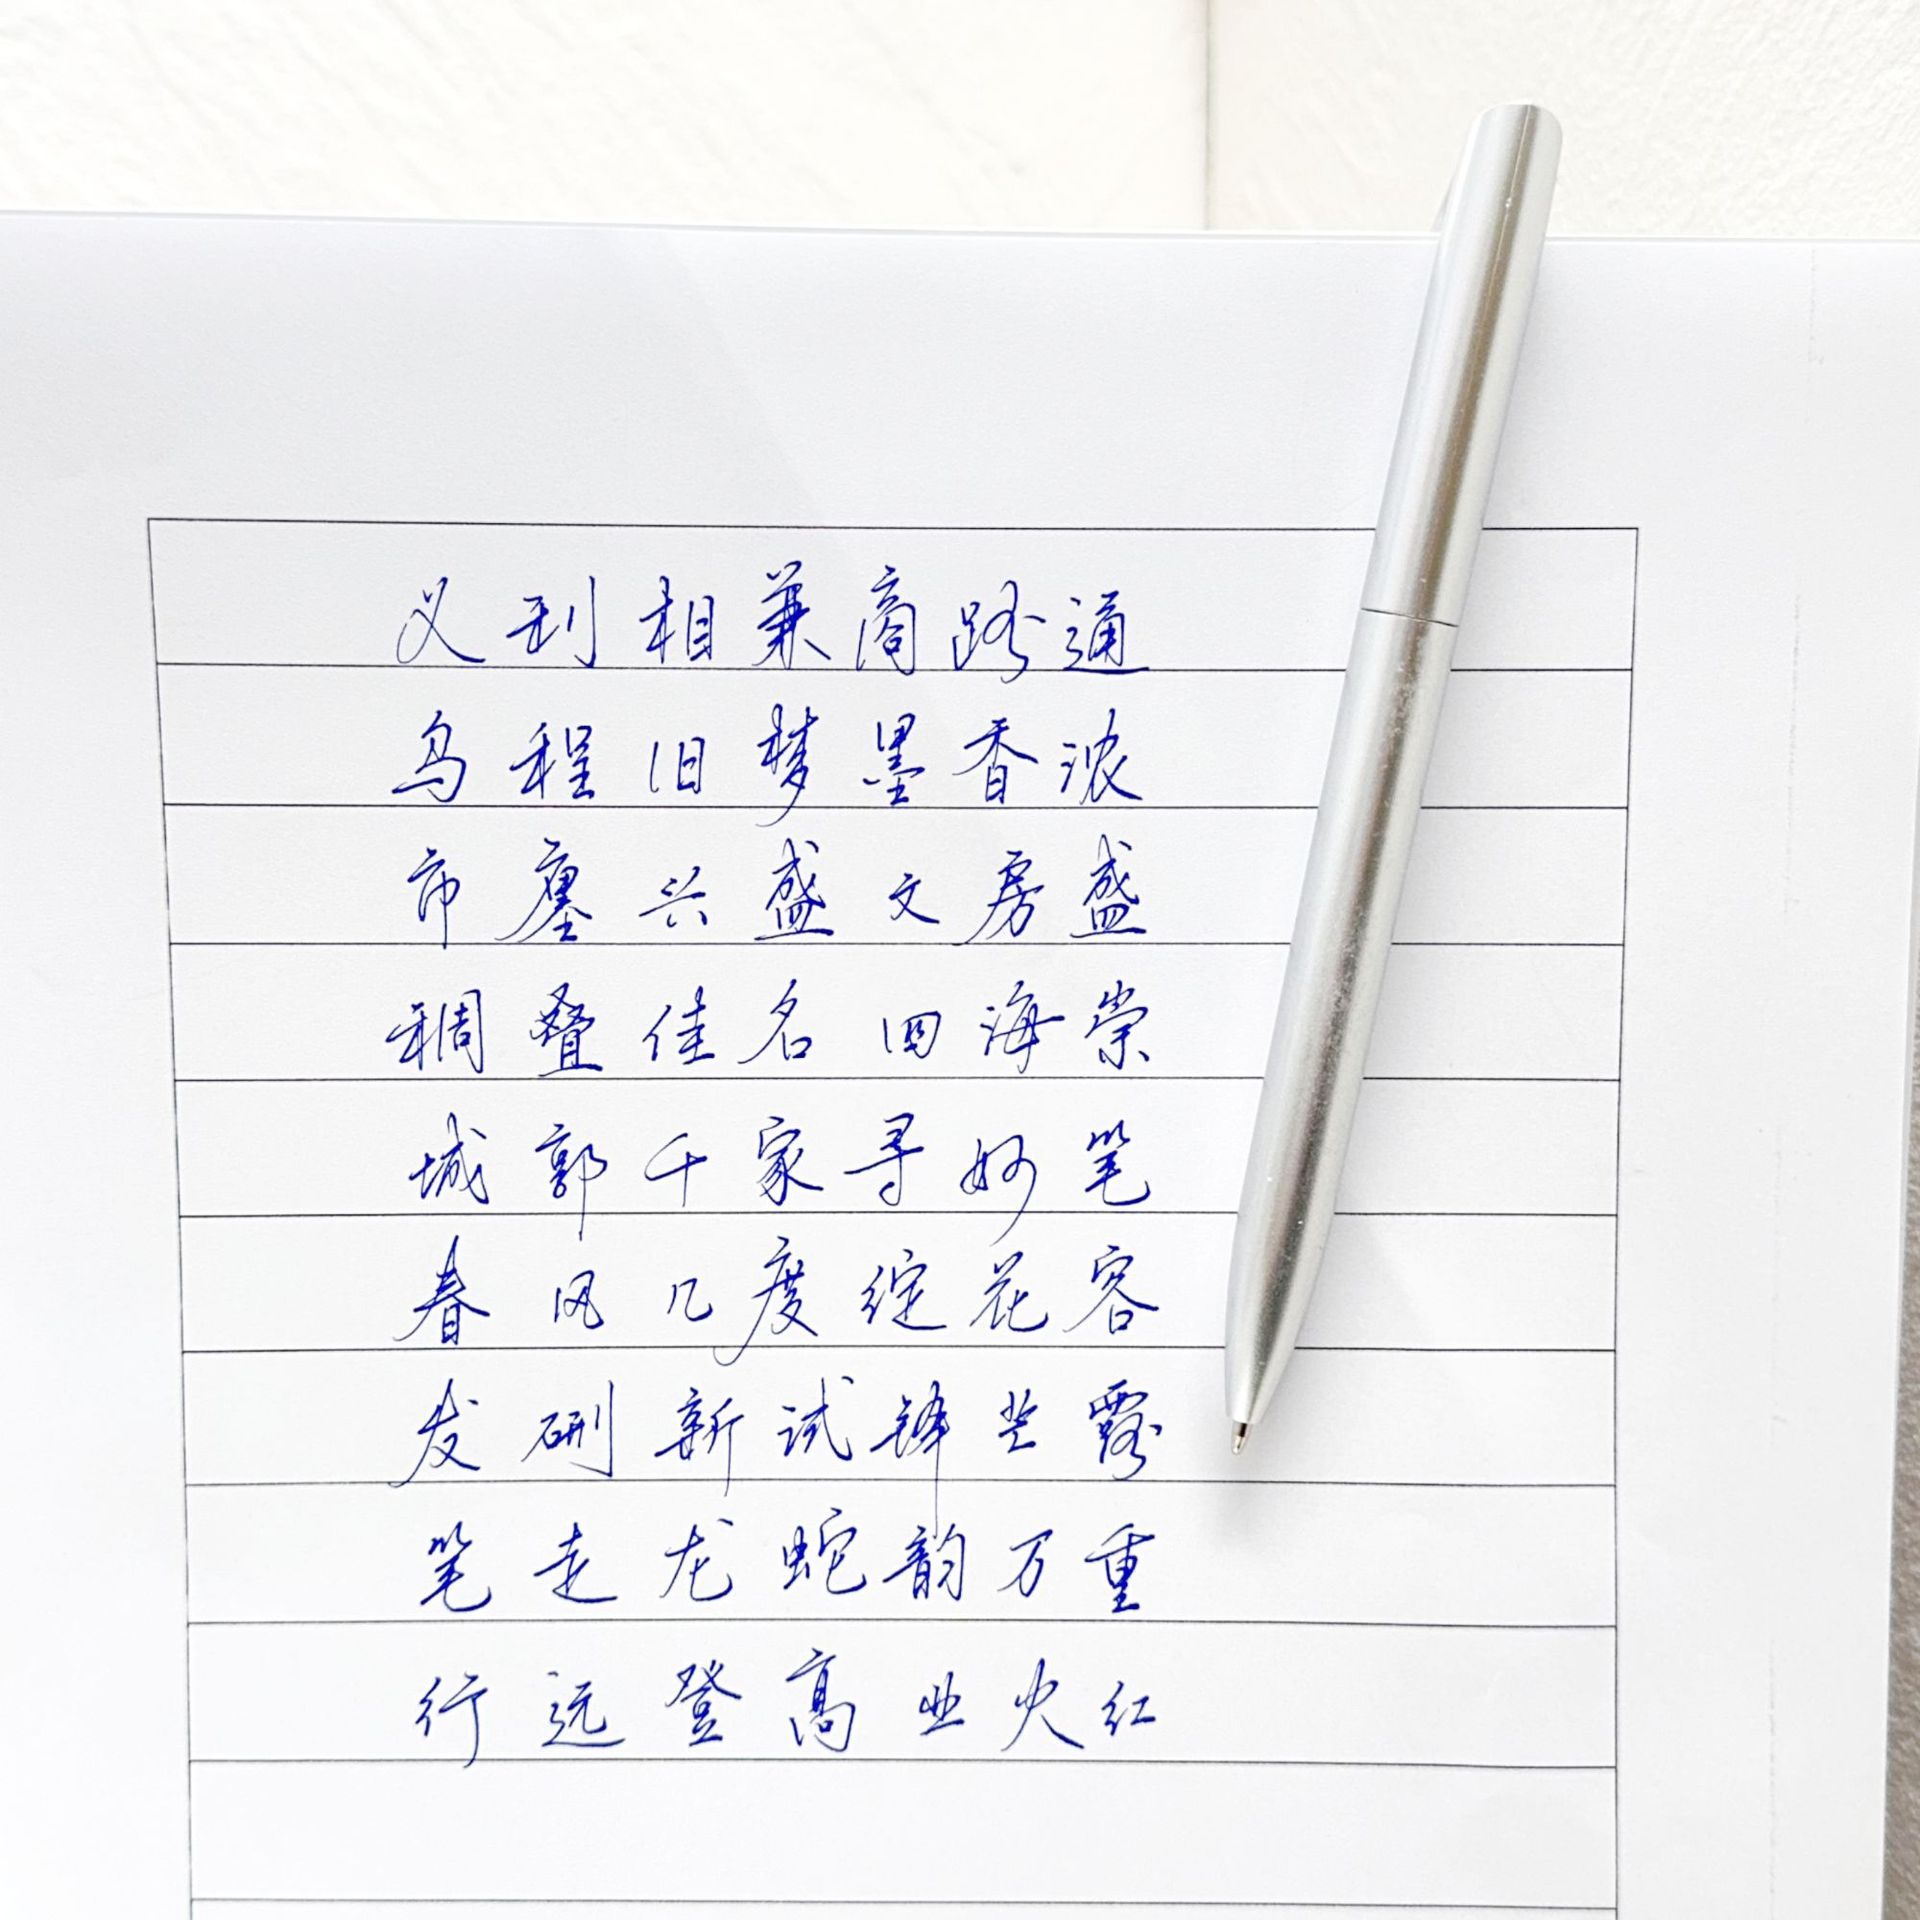 义利相兼商路通
乌程旧梦墨香浓
市廛兴盛文房盛
稠叠佳名四海崇
城郭千家寻妙笔
春风几度绽花容
发硎新试锋芒露
笔走龙蛇韵万重
行远登高业火红